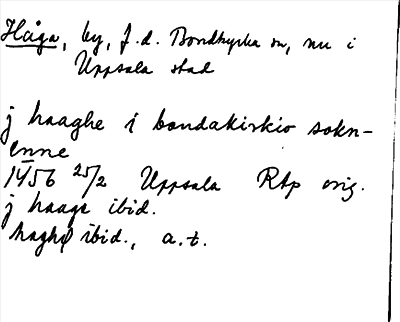 Håga, by, f.d. Bondkyrka sn, nu i
Uppsala stad
j haaghe i bondakirkio sokn-
enne
1456 25/2 Uppsala RAp orig.
j haaga ibid.
haghø ibid., a.t.